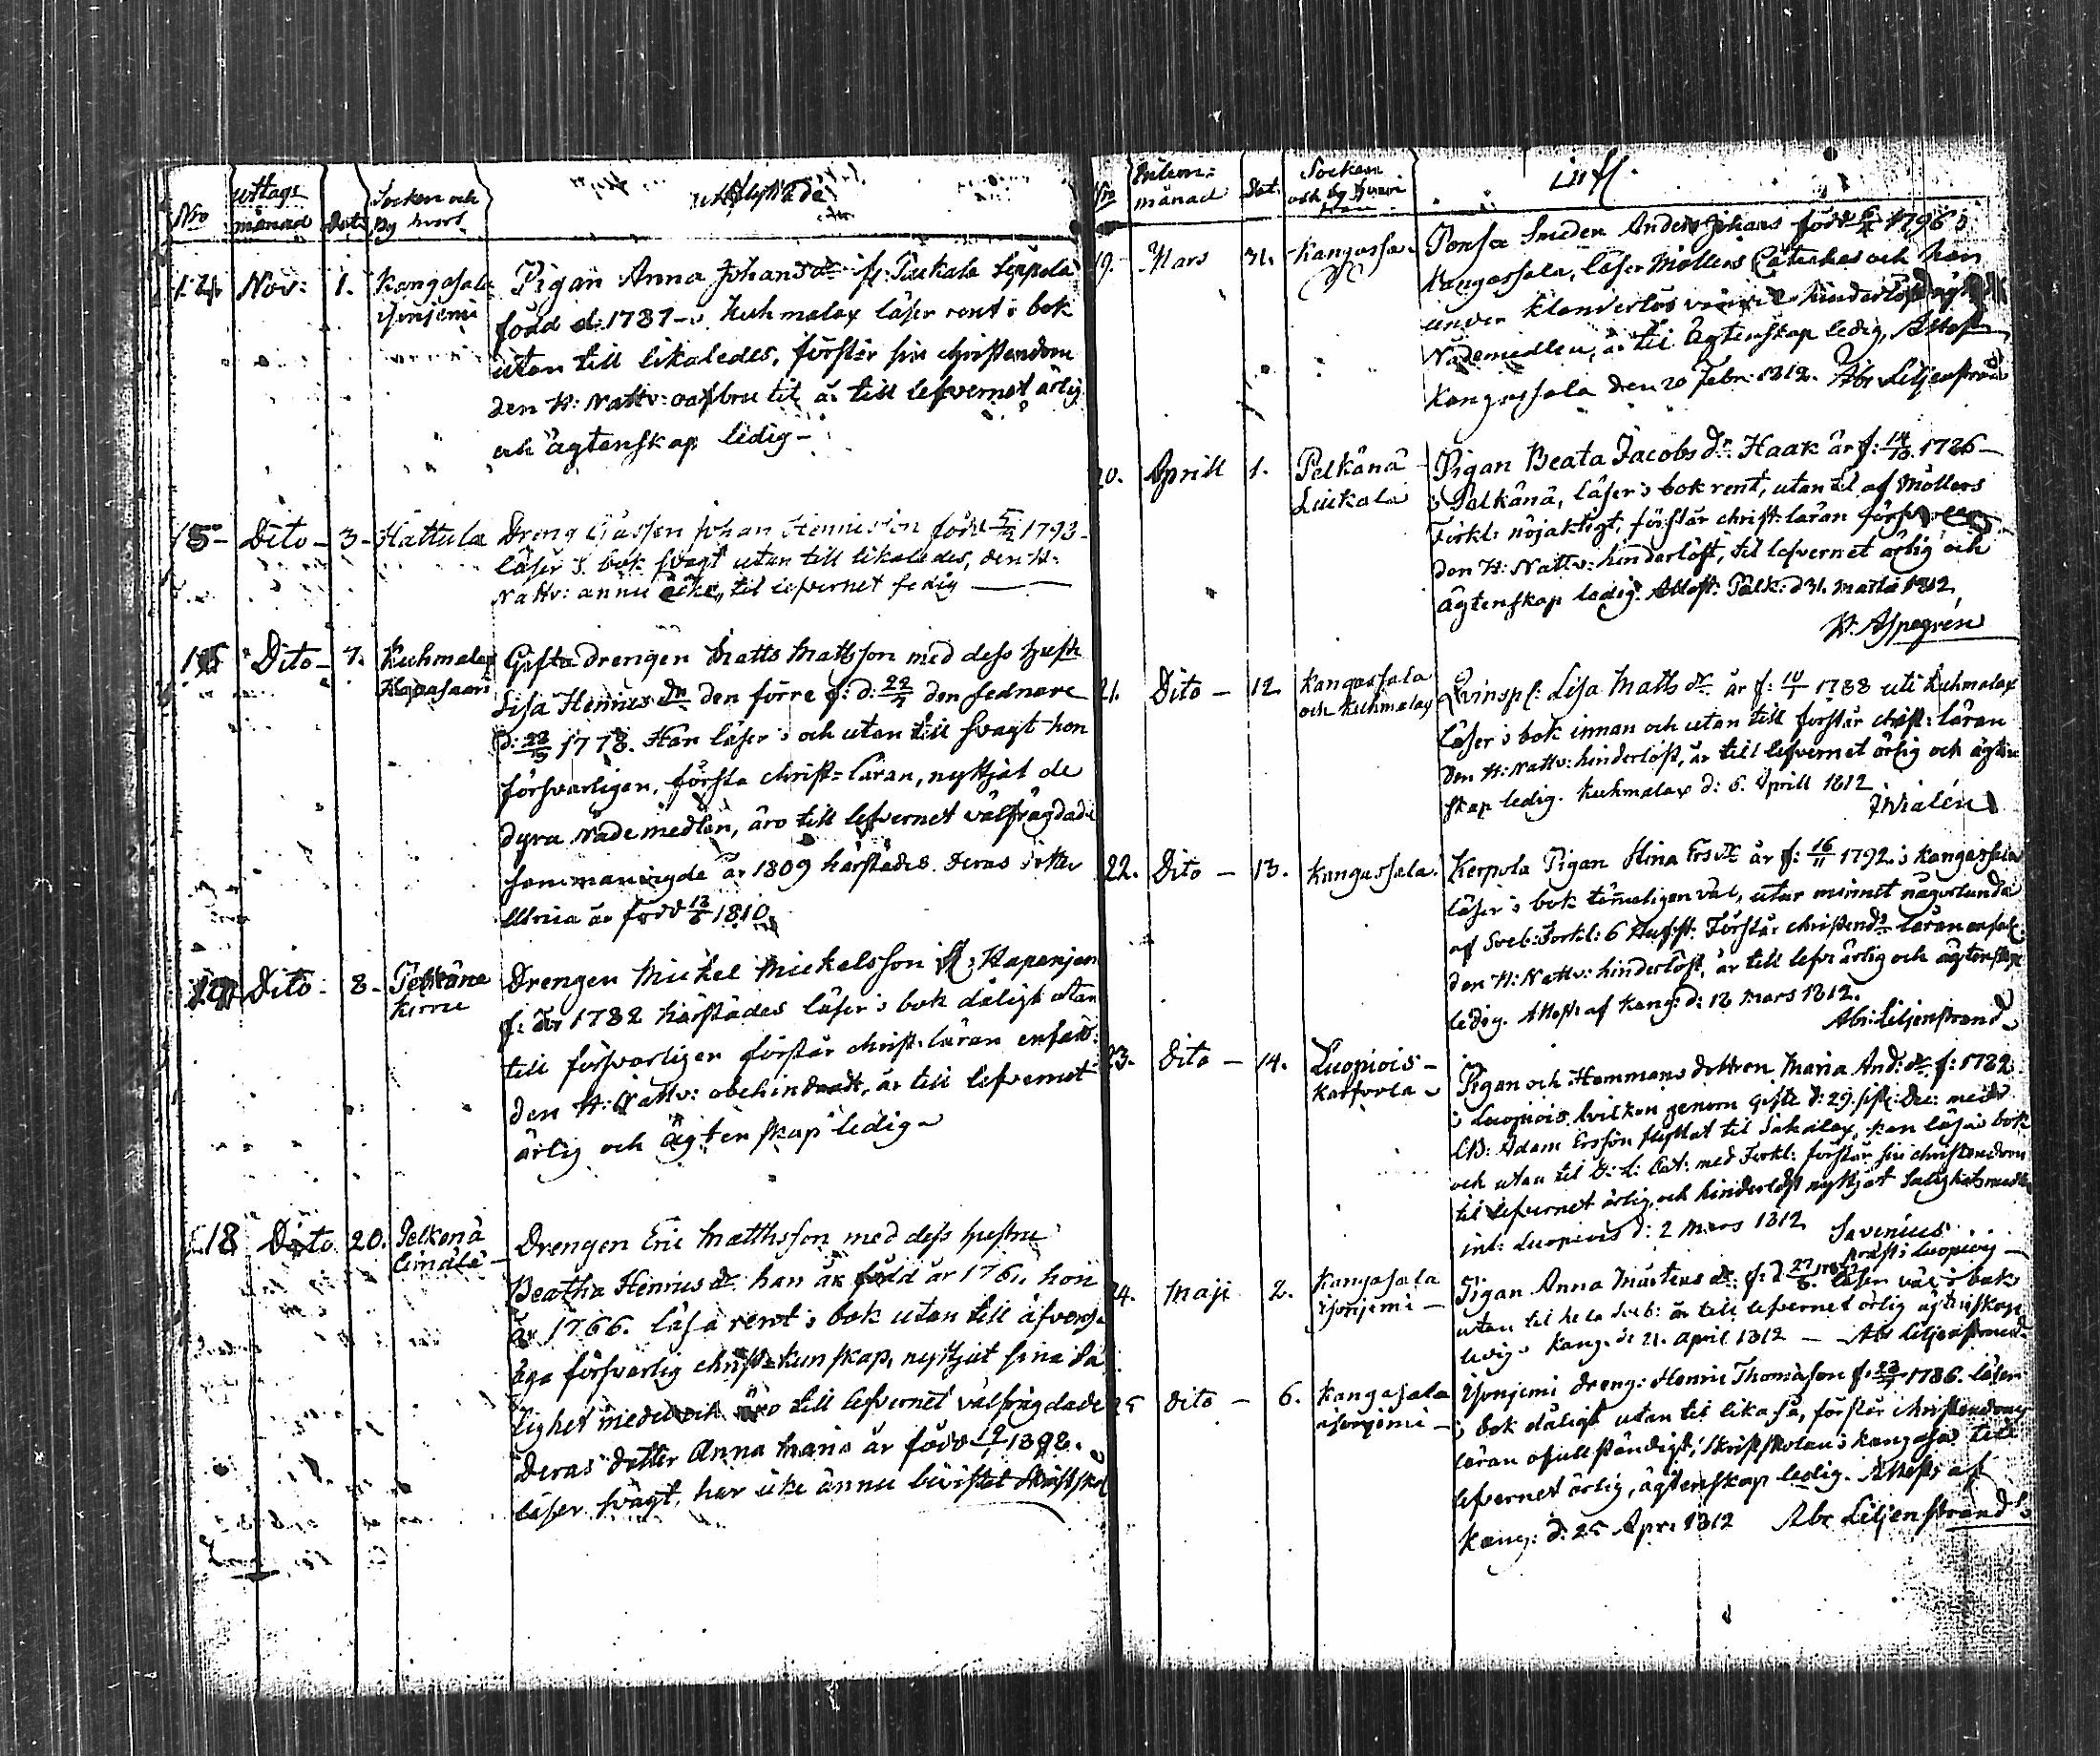 Nro
uttags
månad
Dat:
Socken och
By hvart
utflyttade
14
Nov:
1.
Kangasala
Pigan Anna Johansdr fr: Puckala Seppola
född d: 1787 i Kuhmalax läser rent i bok
utan till likaledes, förstår sin christendom
den H: Nattv: är till lefvernet ärlig
och ägtenskap ledig -
15
Dito
3
Hattula
Dreng Gåssen Johan Hennicson född 1793
läser i bok svagt utan till likaledes, den H:
Nattv: ännu icke, til lefvernet sedig
16
Dito
7.
Kuhmalax
Haapasaari
Gifta Drengen Matts Mattsson med dess hustr
Lisa Henricsdr den förre f: d: 22/ den sednare
d: 1778. Han läser i och utan till svagt hon
försvarligen, förstå christ=läran, nyttjat de
dyra nådemedlen, äro till lefvernet välfrägdade
sammanvigde år 1809 härstädes. Deras dotter
Ulrica är född 1810.
Dito
8
Pelkäne
Drengen Mickel Mickelsson fr: Haapanjen
f: år 1782 härstädes läser i bok dåligt utan
till försvarligen förstår christ: läran enfald:
den H: Nattv: obehindradt, är till lefvernet
ärlig och ägtenskap ledig
18
Dito
20.
Pelkenä
Drengen Eric Matthsson med dess hustru
Beatha Henricsdr han är född år 1761 hon
år 1766. läsa rent i bok utan till äfven så
äga försvarlig christ=kunskap, nyttjat sina sa
lighet medel och äro till lefvernet välfrägdade
Deras dotter Anna Maria är född
läser svagt, har icke ännu bevistat Skriftskol
Nro
månad
Dat:
Socken
och by hvari
från
Infl.
19.
Mars
31.
Kangassala
Smeden Anders Johans född 1796 i
Kangassala, läser Möllers Cateches och han
under klanderlös hinderlöst
Nådemedlen, är til ägtenskap ledig, Attest
Kangassala den 20 Febr: 1812. Abr Liljenstrand
20.
Aprill
1.
Pelkänä
Luikala
Pigan Beata Jacobs Dr Haak är f: 14/ 1786
i Pelkänä, läser i bok rent, utan til af Möllers
Förkl: nöjaktigt, förstår christ: läran
den H: Nattv: hinderlöst, til lefvernet ärlig och
ägtenskap ledig. Attest: Pälk: d 31. Martii 1812
H. Aspegrén
21.
Dito
12
Kangassala
och Kuhmalax
Qvinsp: Lisa Matts dr är f: 10/1 1788 uti Kuhmalax
läser i bok innan och utan till förstår christ: läran
den H: Nattv: hinderlöst, är till lefvernet ärlig och ägten
skap ledig. Kuhmalax d: 6. Aprill 1812
22.
Dito
13.
Kangassala.
Kerpola Pigan Stina Ersdr är f: 16/11 1792 i Kangassala
läser i bok tämeligen väl, utur minnet någorlunda
af Sveb: Förkl: 6 Hufvst: Förstår christend: läran enfald:
den H: Nattv: hinderlöst, är till lefv: ärlig och ägtenskap
ledig. Attest: af Kang: d: 13 Mars 1812.
Abr: Liljenstrand
23.
Dito
14.
Luopiois
Pigan och Hemmans dottren Maria And: dr f: 1782
i Luopiois hvilken genom gifte d: 29. sistl: Dec: med
Adam Ersson flyttat til Sahalax, kan läsa i bok
och utan til D: L: Cat: med Förkl: förstår sin christendom
til lefvernet ärlig och hinderlöst nyttjat Salighetsmedl:
int: Luopiois d: 2 Mars 1812 Savenius
präst i Luopiois
24.
Maji
2.
Kangasala
Pigan Anna Mårtens dr f: d 27/ läser väl i bok
utan til hela Sveb: är till lefvernet ärlig ägtenskap
ledig Kang. d: 21. April 1812 - Abr Liljenstrand
25
Dito
6.
Kangasala
Dreng: Henric Thomasson f: 1786. läser
i bok dåligt utan til lika så, förstår christendoms
läran ofullständigt, i Kangasala till
lefvernet ärlig, ägtenskap ledig. Attest: af
Kang: d: 25 Apr: 1812 Abr Liljenstrand